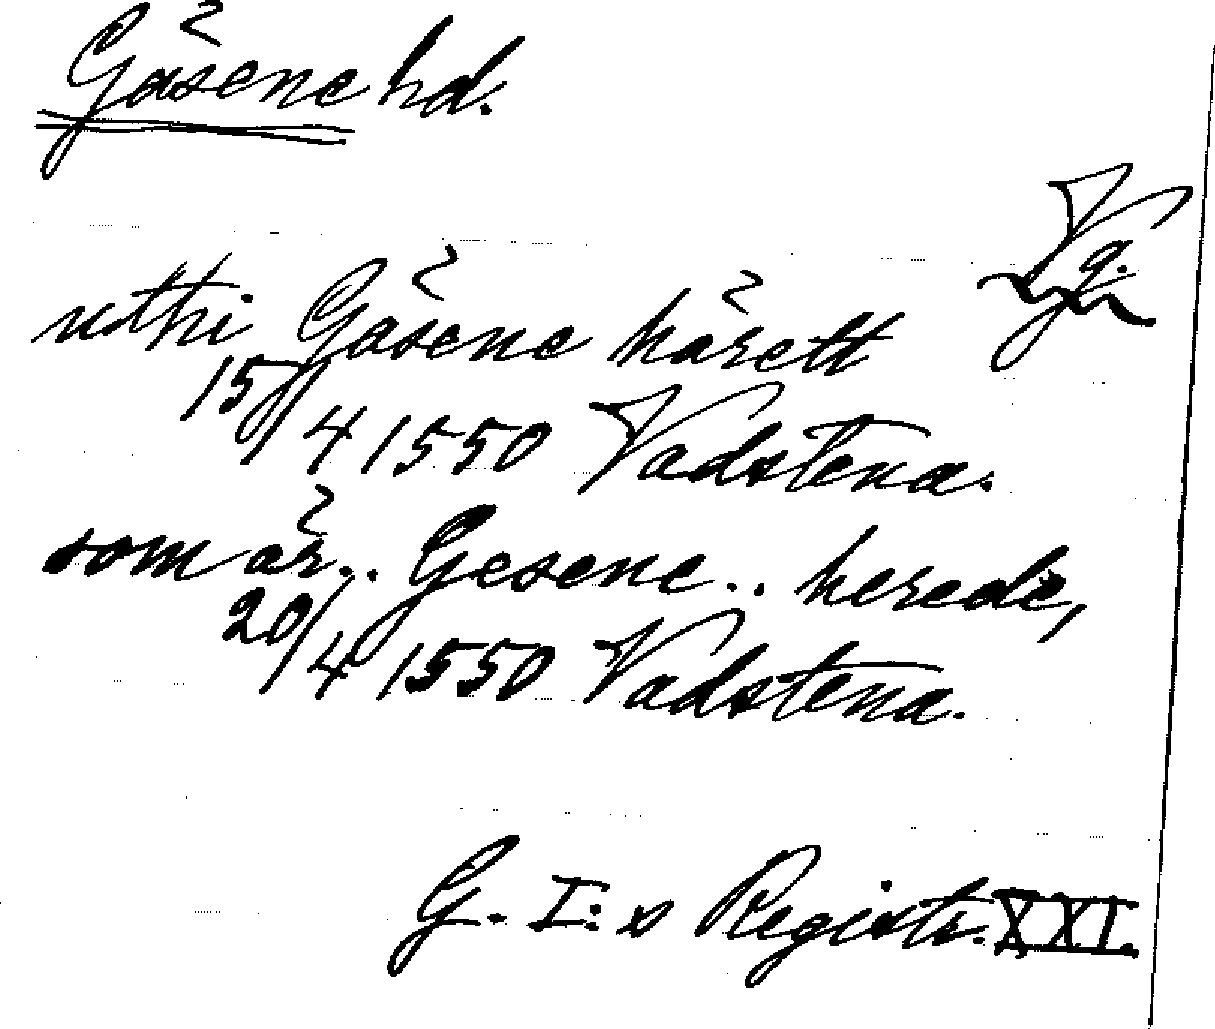 Gäsene hd.
Vg.
uthi Gäsene härett
15/4 1550 Vadstena.
som är.. Gesene.. herede,
20/4 1550 Vadstena.
G. I:s Registr. XXI.